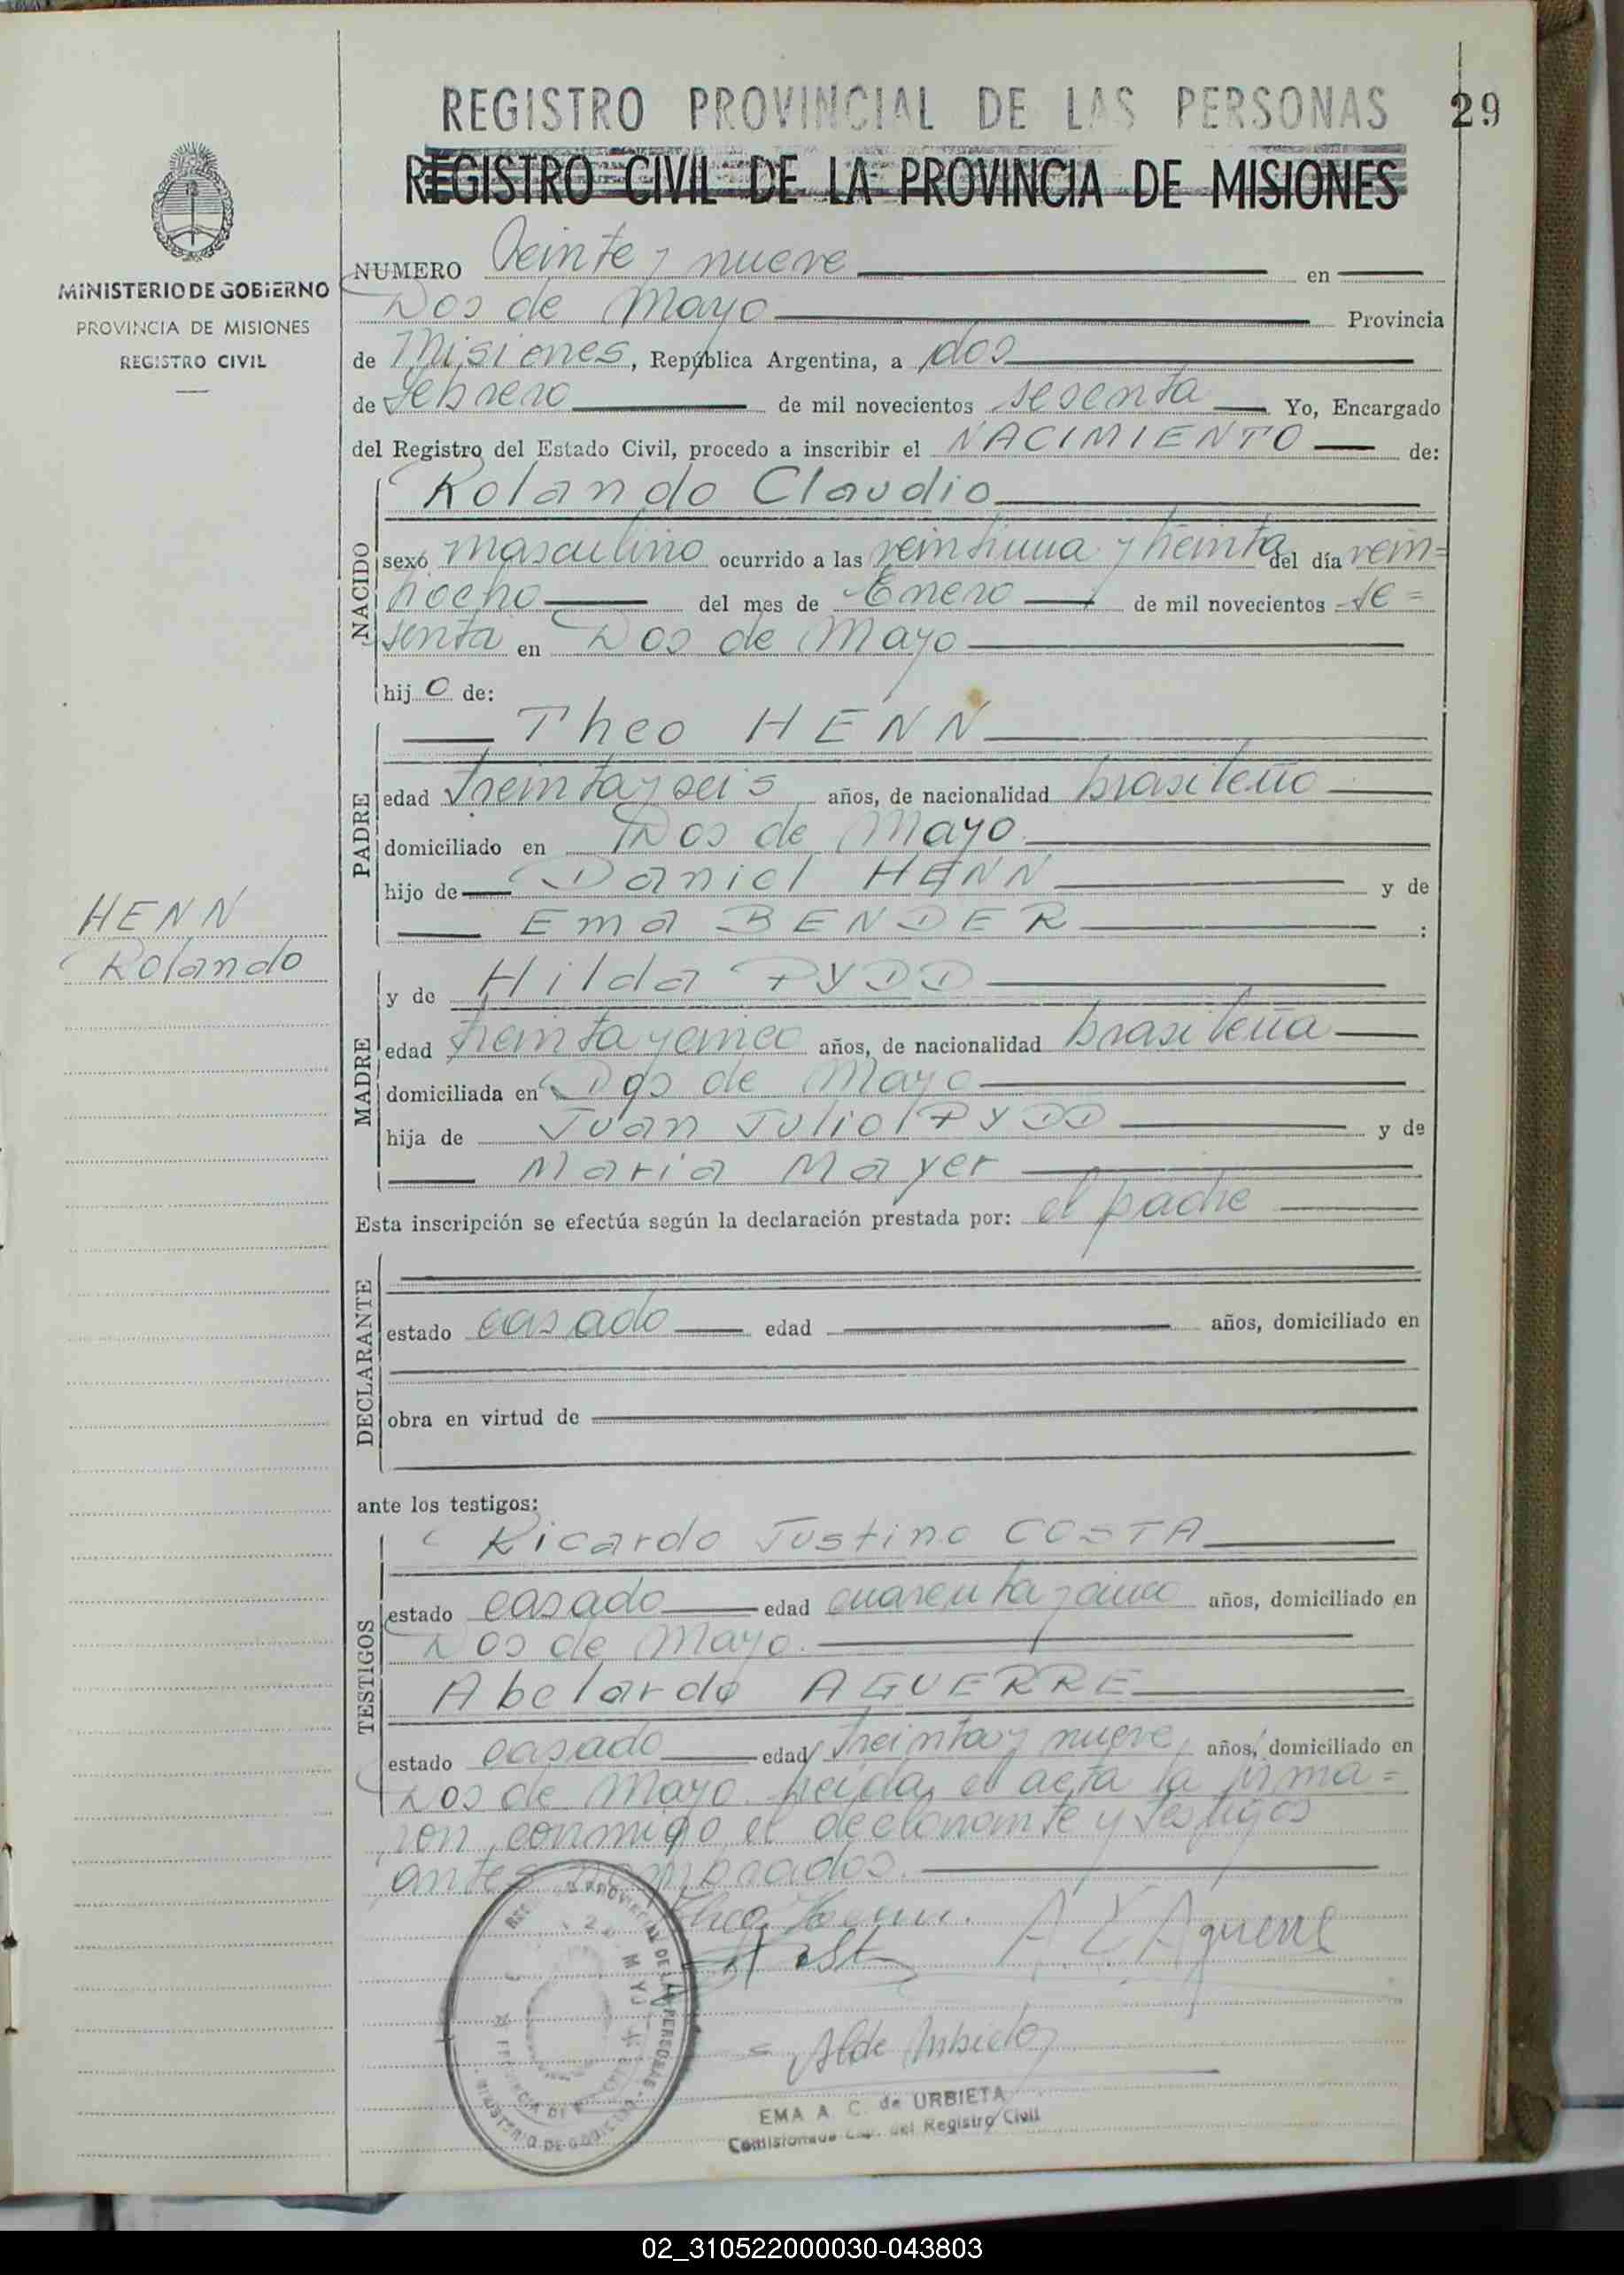 REGISTRO PROVINCIAL DE LAS PERSONAS 29
REGISTRO CIVIL DE LA PROVINCIA DE MISIONES
MINISTERIO DE GOBIERNO
PROVINCIA DE MISIONES
REGISTRO CIVIL
NUMERO Veinte y nueve en
Dos de Mayo Provincia
de Misiones, República Argentina, a dos
de febrero de mil novecientos sesenta Yo, Encargado
del Registro del Estado Civil, procedo a inscribir el NACIMIENTO de:
NACIDO
Rolando Claudio
sexo masculino ocurrido a las veintiuna y treinta del día vein=
tiocho del mes de Enero de mil novecientos se=
senta en Dos de Mayo
hijo de:
PADRE
Theo HENN
edad treinta y seis años, de nacionalidad brasileño
domiciliado en Dos de Mayo
hijo de Daniel HENN y de
Ema BENDER :
HENN
Rolando
MADRE
y de Hilda PYDD
edad treinta y cinco años, de nacionalidad brasileña
domiciliada en Dos de Mayo
hija de Juan Julio PYDD y de
Maria Mayer
Esta inscripción se efectúa según la declaración prestada por: el padre
DECLARANTE
estado casado edad años, domiciliado en
obra en virtud de
ante los testigos:
TESTIGOS
Ricardo Justino COSTA
estado casado edad cuarenta y cinco años, domiciliado en
Dos de Mayo.
Abelardo AGUERRE
estado casado edad treinta y nueve años, domiciliado en
Dos de Mayo. Leída el acta la firma=
ron conmigo el declarante y testigos
antes nombrados.
Theo Henn. A Aguerre
EMA A C. de URBIETA
del Registro Civil
02_310522000030-043803